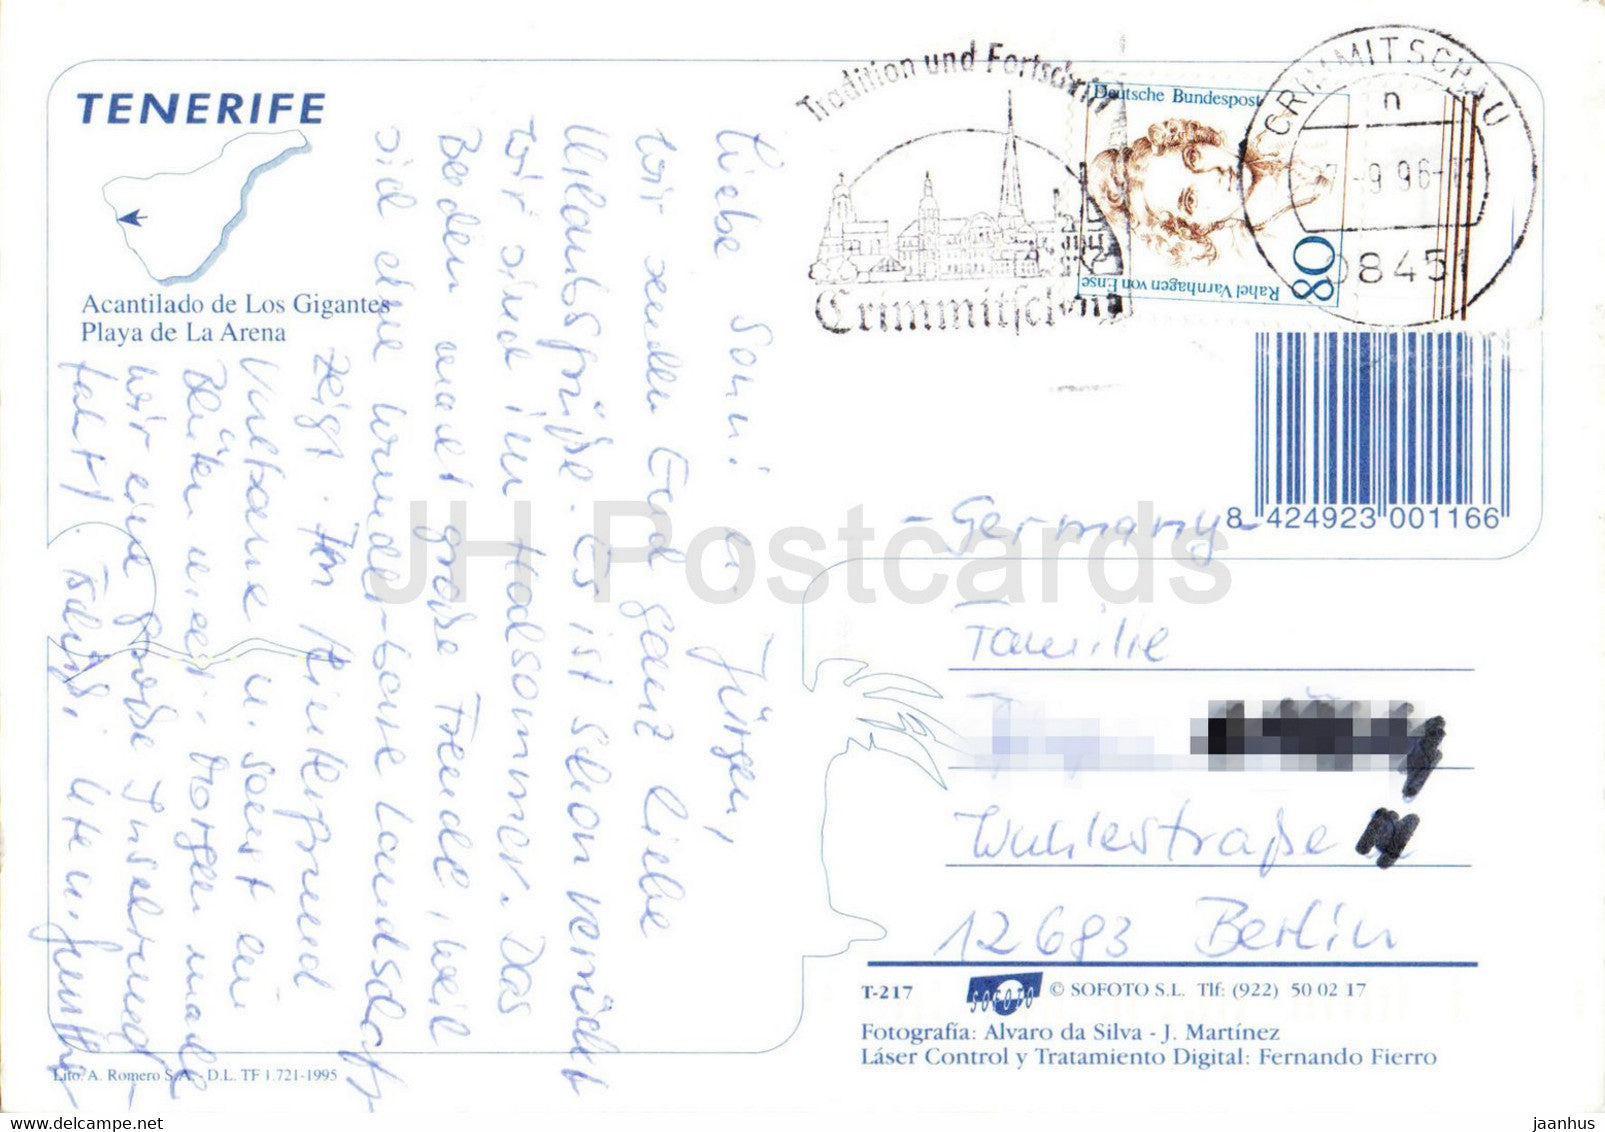 TENERIFE
Acantilado de Los Gigantes
Playa de La Arena
Tradition und Fortschritt
Crimmitschau
Deutsche Bundespost
80
Rahel Varnhagen von Ense
CRIMMITSCHAU
n
-9 96-11
08451
8 424923 001166
Liebe Soni u. Jürgen,
wir senden Euch ganz liebe
Urlaubsgrüße. Es ist schon verrückt
wir sind im Hochsommer. Das
Baden macht große Freude, weil
sich eine wunderbare Landschaft
zeigt. Im Hintergrund
Vulkane u. sonst ein
Blüten Morgen machen
wir eine große Inselrund-
fahrt! Tschüß. Ute u. Gunther
- Germany -
Familie
Wuhlestraße
12683 Berlin
T-217 SOFOTO © SOFOTO S.L. Tlf: (922) 50 02 17
Fotografía: Alvaro da Silva - J. Martínez
Láser Control y Tratamiento Digital: Fernando Fierro
Lito. A. Romero S.A. - D.L. TF 1.721-1995
JH Postcards
jaanhus
www.delcampe.net